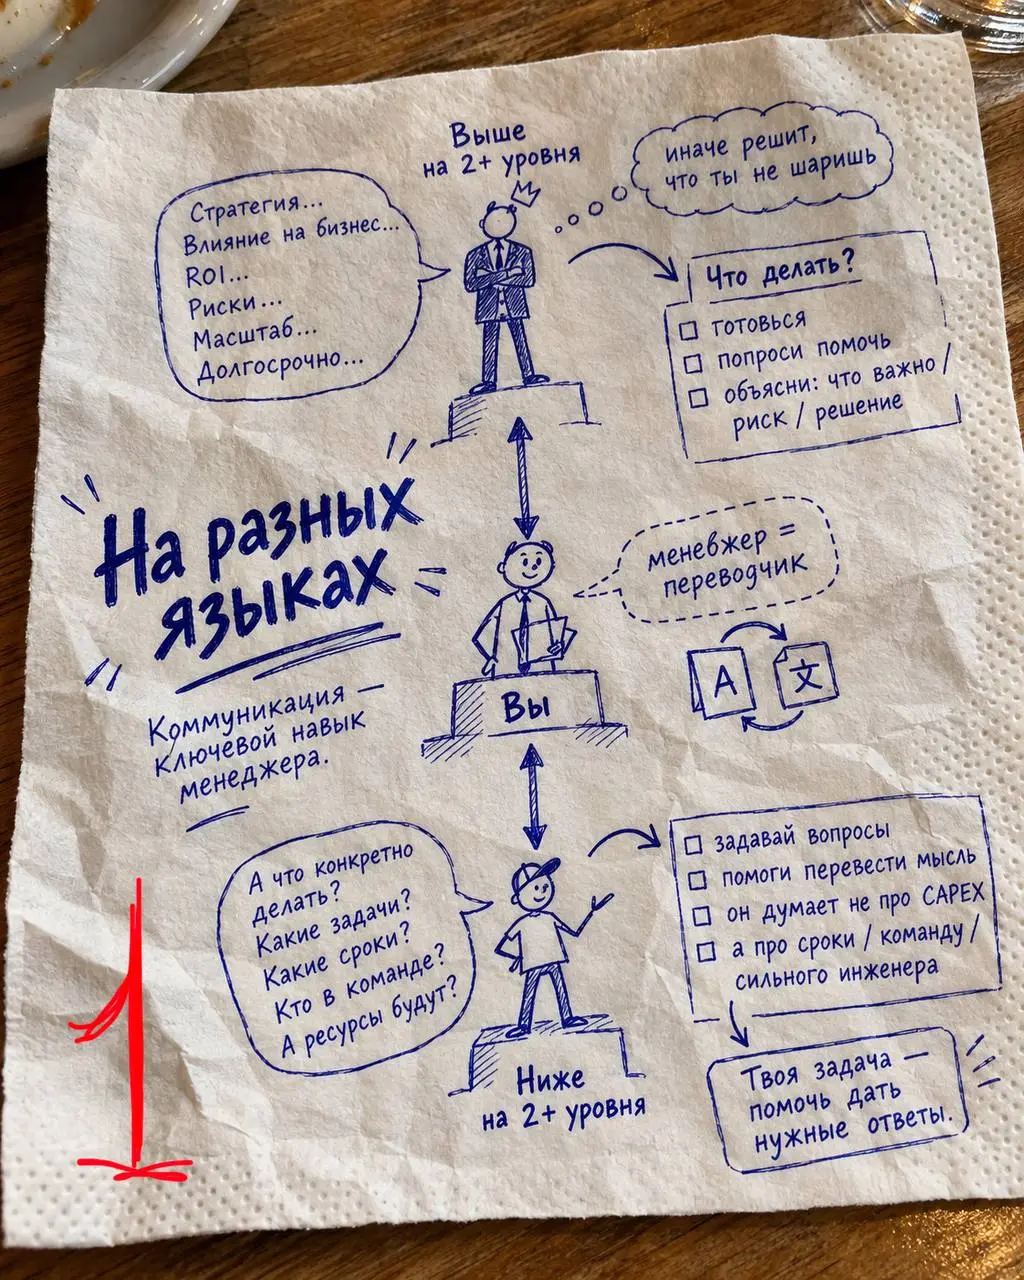 Выше
на 2+ уровня
иначе решит,
что ты не шаришь
Стратегия...
Влияние на бизнес...
ROI...
Риски...
Масштаб...
Долгосрочно...
Что делать?
готовься
попроси помочь
объясни: что важно /
риск / решение
На разных
языках
Коммуникация —
ключевой навык
менеджера.
менебжер =
переводчик
A 文
Вы
А что конкретно
делать?
Какие задачи?
Какие сроки?
Кто в команде?
А ресурсы будут?
задавай вопросы
помоги перевести мысль
он думает не про CAPEX
а про сроки / команду /
сильного инженера
Ниже
на 2+ уровня
Твоя задача —
помочь дать
нужные ответы.
1